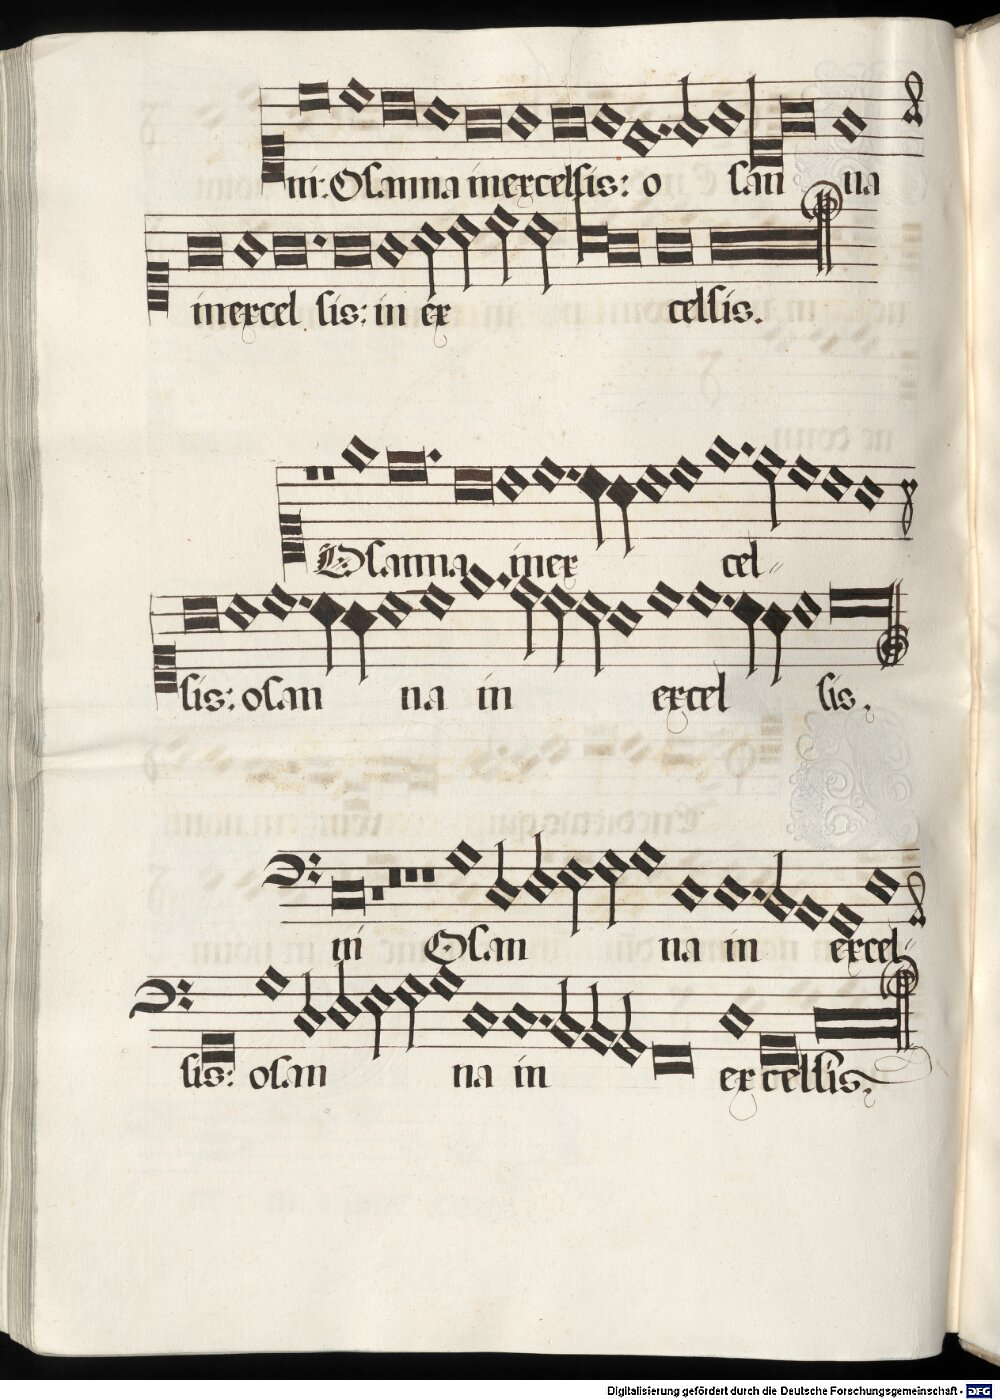 ni. Osanna inexcelsis: o san na
inexcel sis: in ex celsis.
Osanna inex cel
sis: osan na in excel sis.
ni Osan na in excel
sis: osan na in ex celsis.
Digitalisierung gefördert durch die Deutsche Forschungsgemeinschaft - DFG